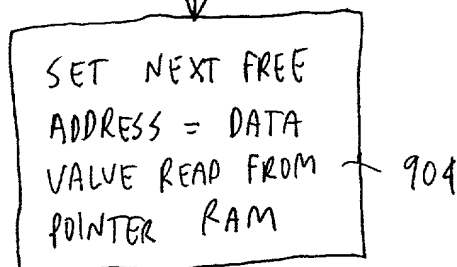 SET NEXT FREE
ADDRESS = DATA
VALUE READ FROM
POINTER RAM
904